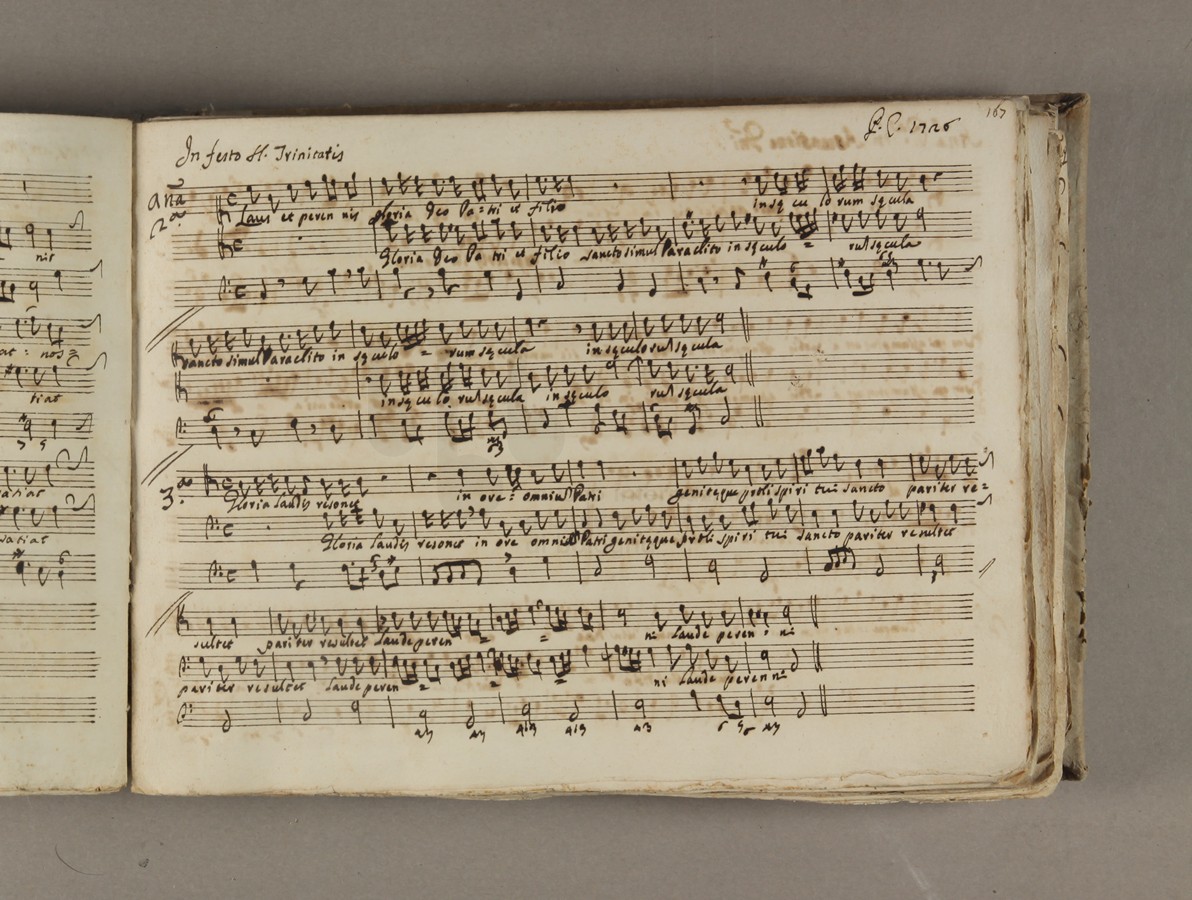 167
P. C. 1726
In festo SS. Trinitatis
Aña 2ª
Laus et peren nis gloria Deo Pa = tri et filio in sę cu lo rum sęcula
Gloria Deo Pa tri et filio sancto simul Paraclito in sęculo = rum sęcula
sancto simul Paraclito in sęculo = rum sęcula in sęculo rum sęcula
in sęcu lo rum sęcula in sęculo rum sęcula
3ª
Gloria laudis resonet in ore = omnium Patri genitęque proli spiri tui sancto pariter re =
Gloria laudis resonet in ore omnium Patri genitęque proli spiri tui sancto pariter resultet
sultet pariter resultet laude peren = = ni laude peren = ni
pariter resultet laude peren = = = ni laude peren ni